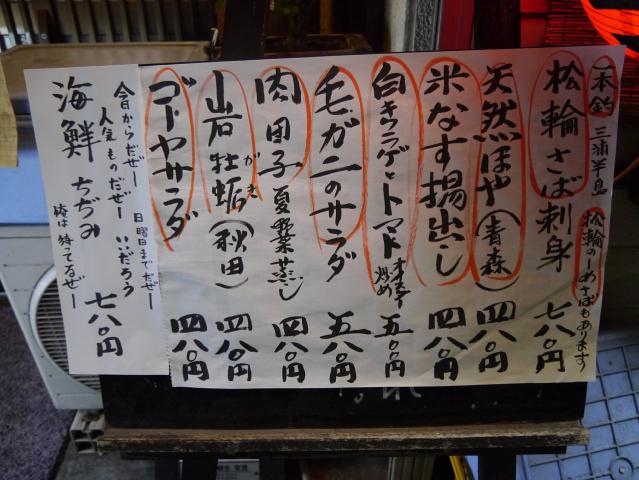 一本釣 三浦半島
松輪さば刺身 七八〇円
松輪のしめさばもあります
天然ほや(青森) 四八〇円
米なす揚出し 四八〇円
白キクラゲとトマト 炒め 五〇〇円
毛ガニのサラダ 五八〇円
肉団子夏野菜蒸し 四八〇円
岩牡蛎(秋田) 四八〇円
がき
ゴーヤサラダ 四八〇円
今日からだぜー
日曜日までだぜー
人気ものだぜー
いいだろう
海鮮ちぢみ 七八〇円
俺は待ってるぜー